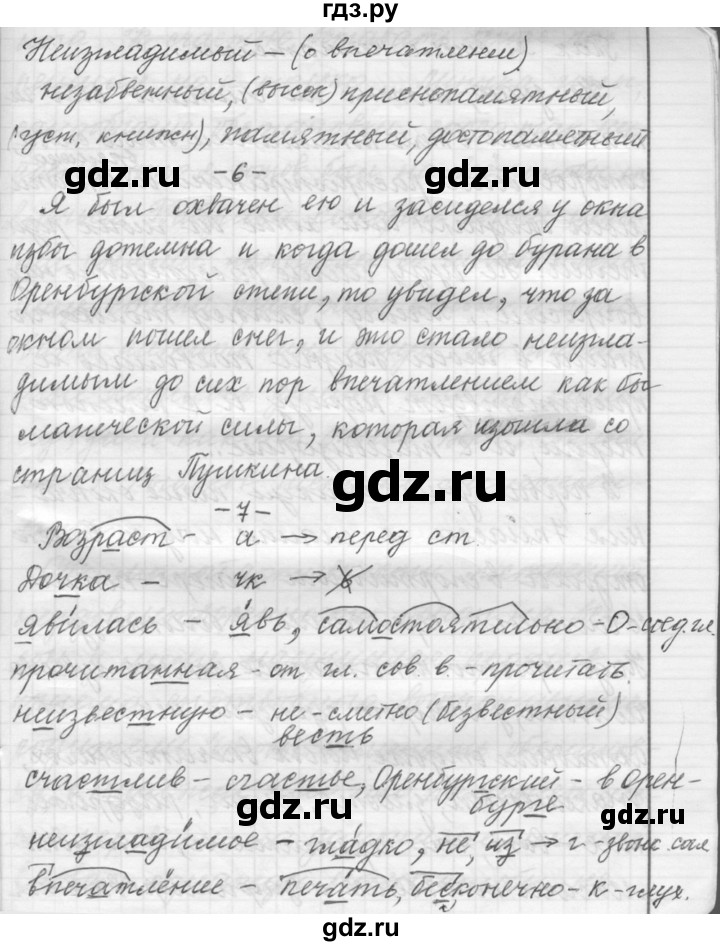 гдз.ру
Неизгладимый – (о впечатлении)
незабвенный, (высок) приснопамятный,
(уст, книжн), памятный, достопамятный
gdz.ru
-6-
gdz.ru
Я был охвачен ею и засиделся у окна
избы дотемна и когда дошел до бурана в
Оренбургской степи, то увидел, что за
окном пошел снег, и это стало неизгла-
димым до сих пор впечатлением как бы
магической силы, которая изошла со
страниц Пушкина.
gdz.ru
-7-
gdz.ru
Возраст – а → перед ст.
Дочка – чк → ь
явилась – явь, самостоятельно – О – соед. гл.
прочитанная – от гл. сов. в. – прочитать,
неизвестную – не – сметно (безвестный)
весть
счастлив – счастье, Оренбургский – в Орен-
бурге
gdz.ru
gdz.ru
неизгладимое – гладко, не, из → г – звонк. согл
впечатление – печать, бесконечно – к – глух.
gdz.ru
gdz.ru